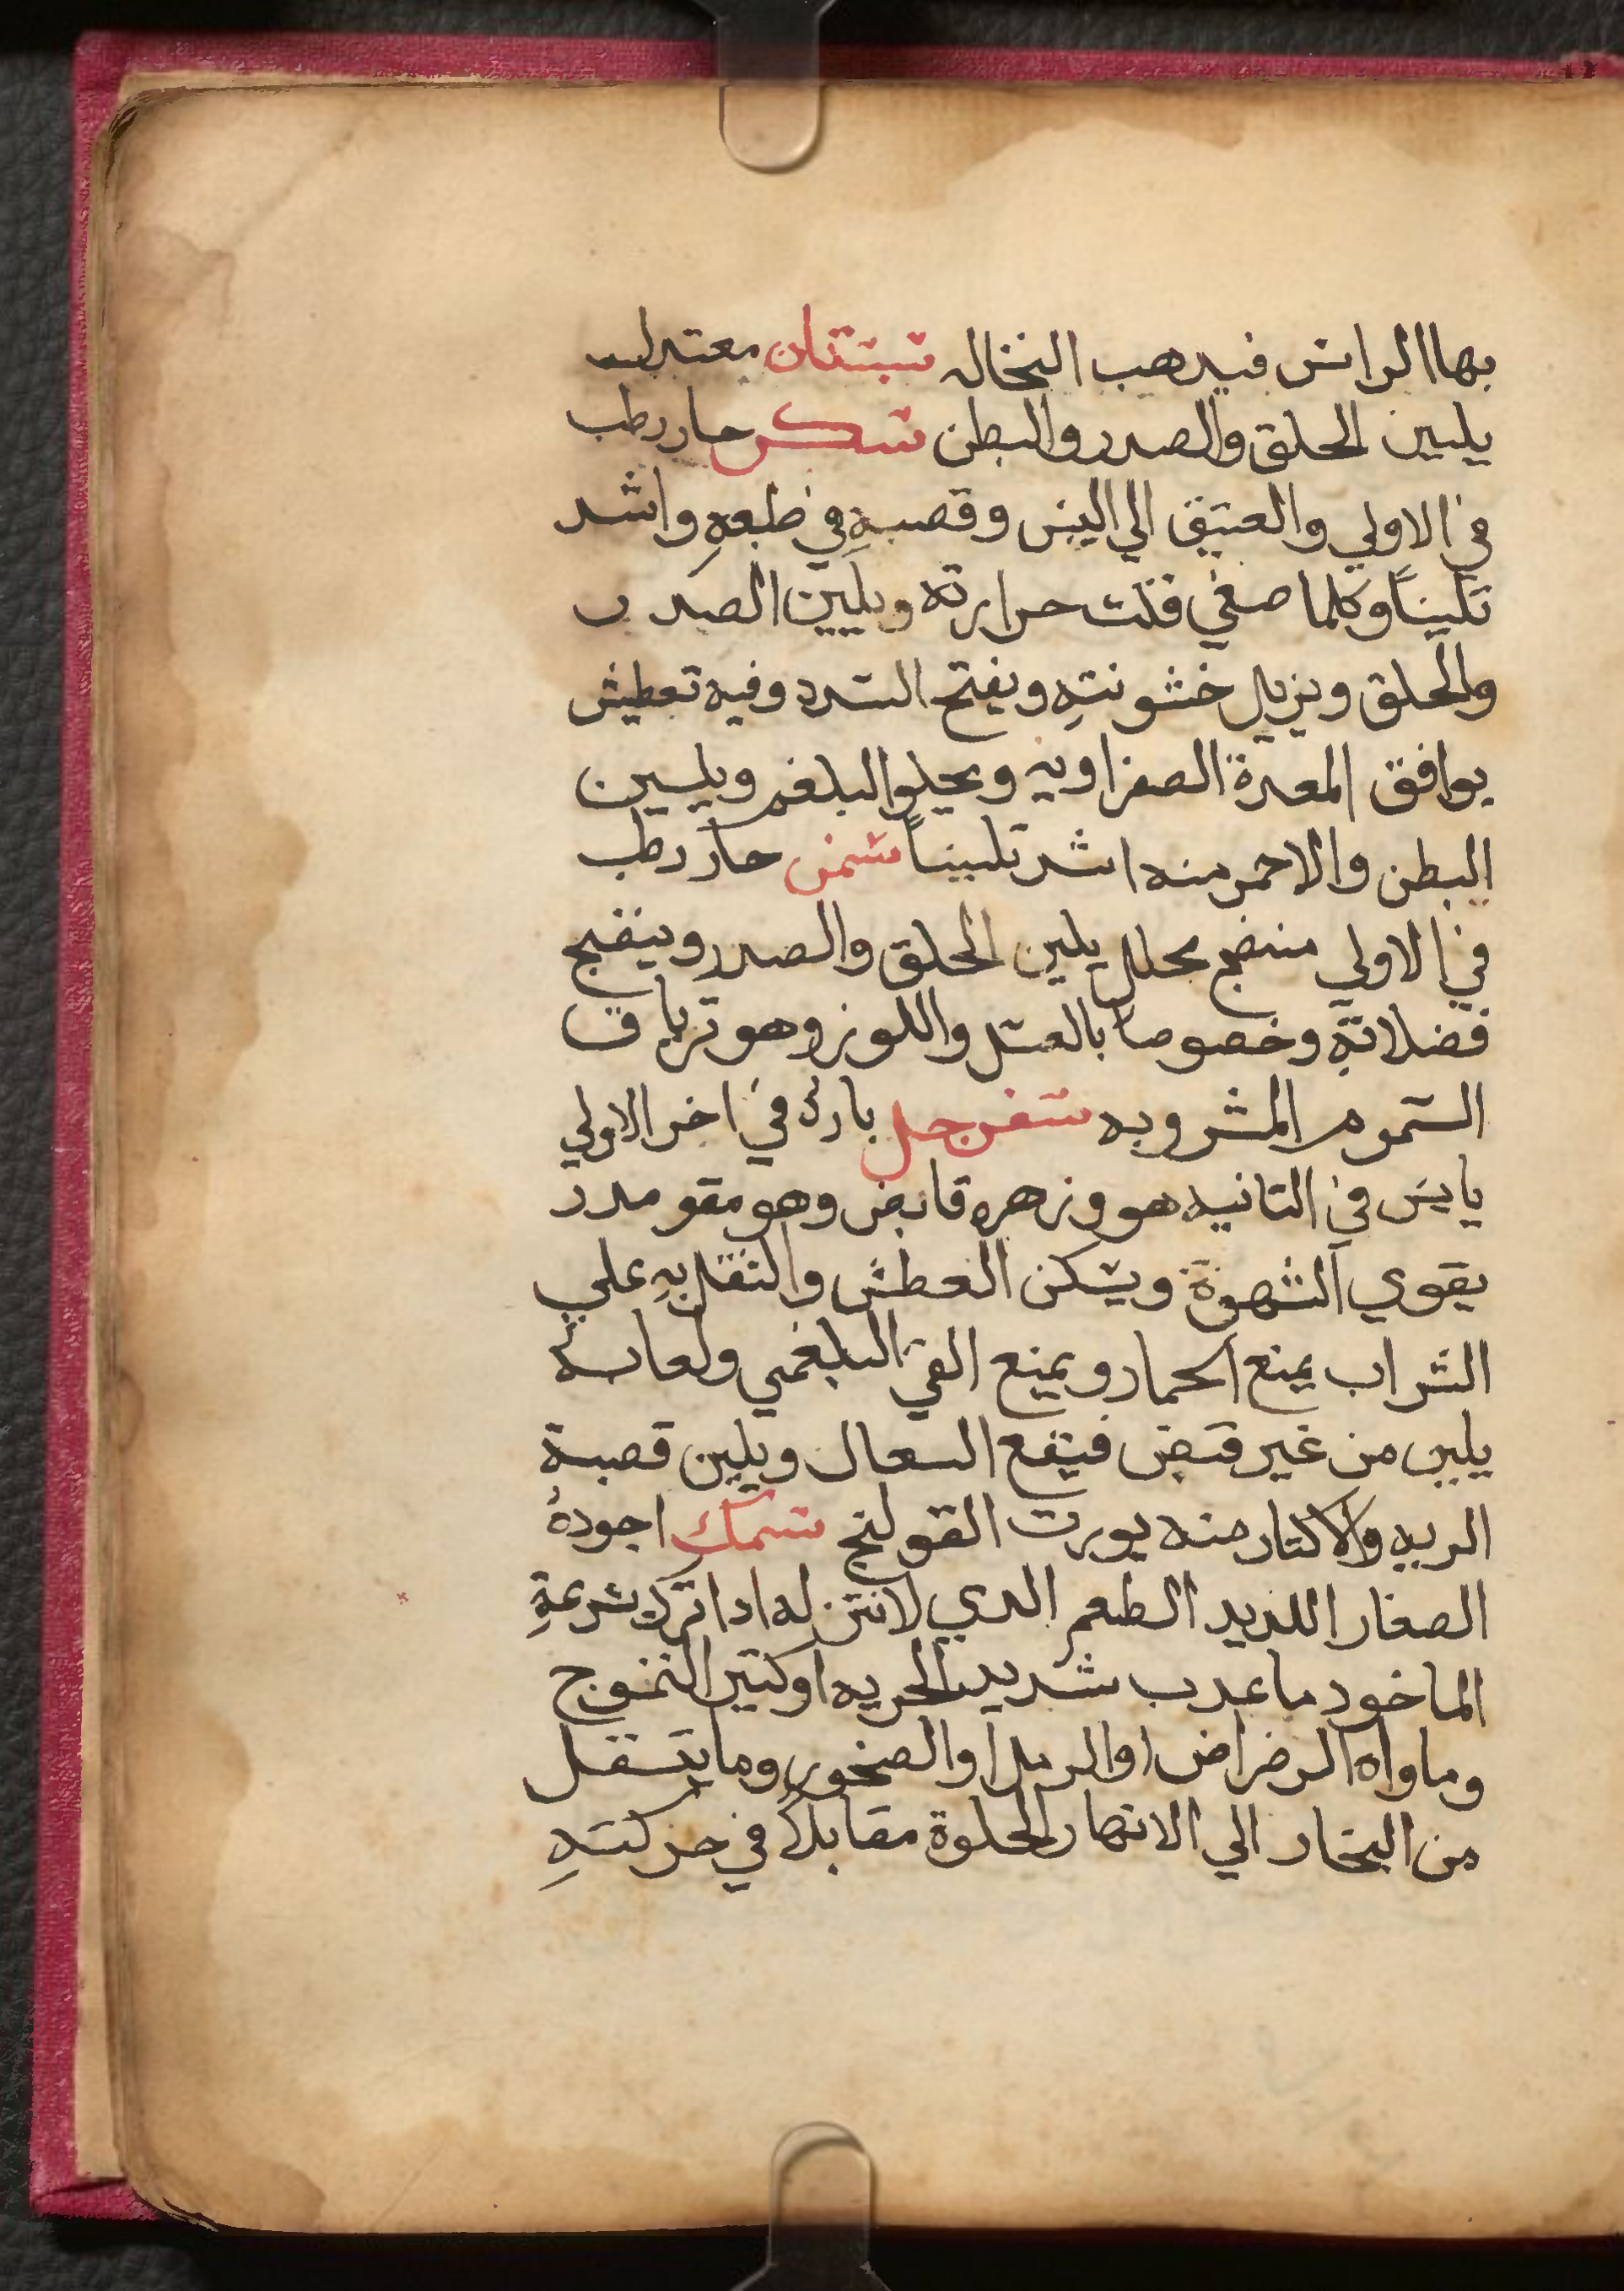 بها الراس فيدهب النخاله سبستان معتدل
يليين الحلق والصدر والبطن سكر حار رطب
في الاولي والعتيق الي اليبس وقصبهِ في طبعهِ واشد
تلييناً وكلما صفي قلت حرارته ويليين الصدر
والحلق ويزيل خشونتهِ ويفتح السدد وفيه تعطيش
يوافق المعدة الصفراويه ويجلوا البلغم ويليين
البطن والاحمر منه اشد تلييناً سمن حار رطب
في الاولي منضج محلل يلين الحلق والصدر وينضج
فضلاتهِ وخصوصا بالعسل واللوز وهو ترياق
السموم المشروبه سفرجل بارد في اخر الاولي
يابس في التانيه هو وزهره قابض وهو مقو مدر
يقوي الشهوة ويسكن العطش والتنقل بهِ علي
الشراب يمنع الخمار ويمنع القي البلغمي ولعابه
يلين من غير قبض فينفع السعال ويلين قصبة
الريه والاكتار منه يورت القولنج سمك اجودهُ
الصغار اللديد الطعم الدي لانتن له ادا ترك بسرعةِ
الماخود ما عدب شديد الجريه او كتير التموج
وماواه الرضراض او الرمل او الصخور وما ينتقل
من البحار الي الانهار الحلوة مقابلاً في حركتهِ